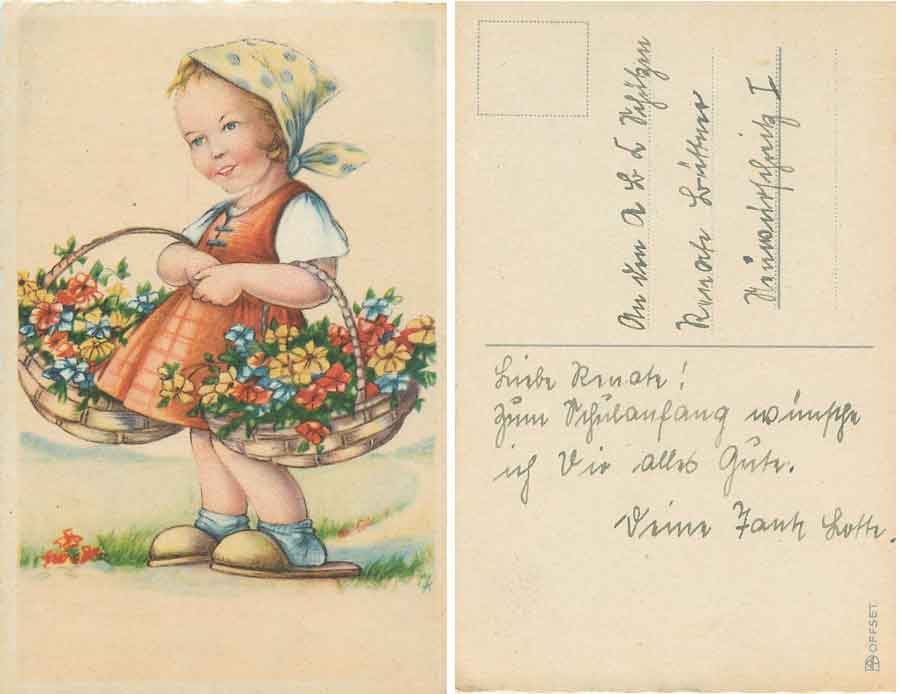 An den A B C Schützen
Renate Büttner
Neuwürschnitz I
Liebe Renate!
Zum Schulanfang wünsche
ich Dir alles Gute.
Deine Tante Lotte.
OFFSET